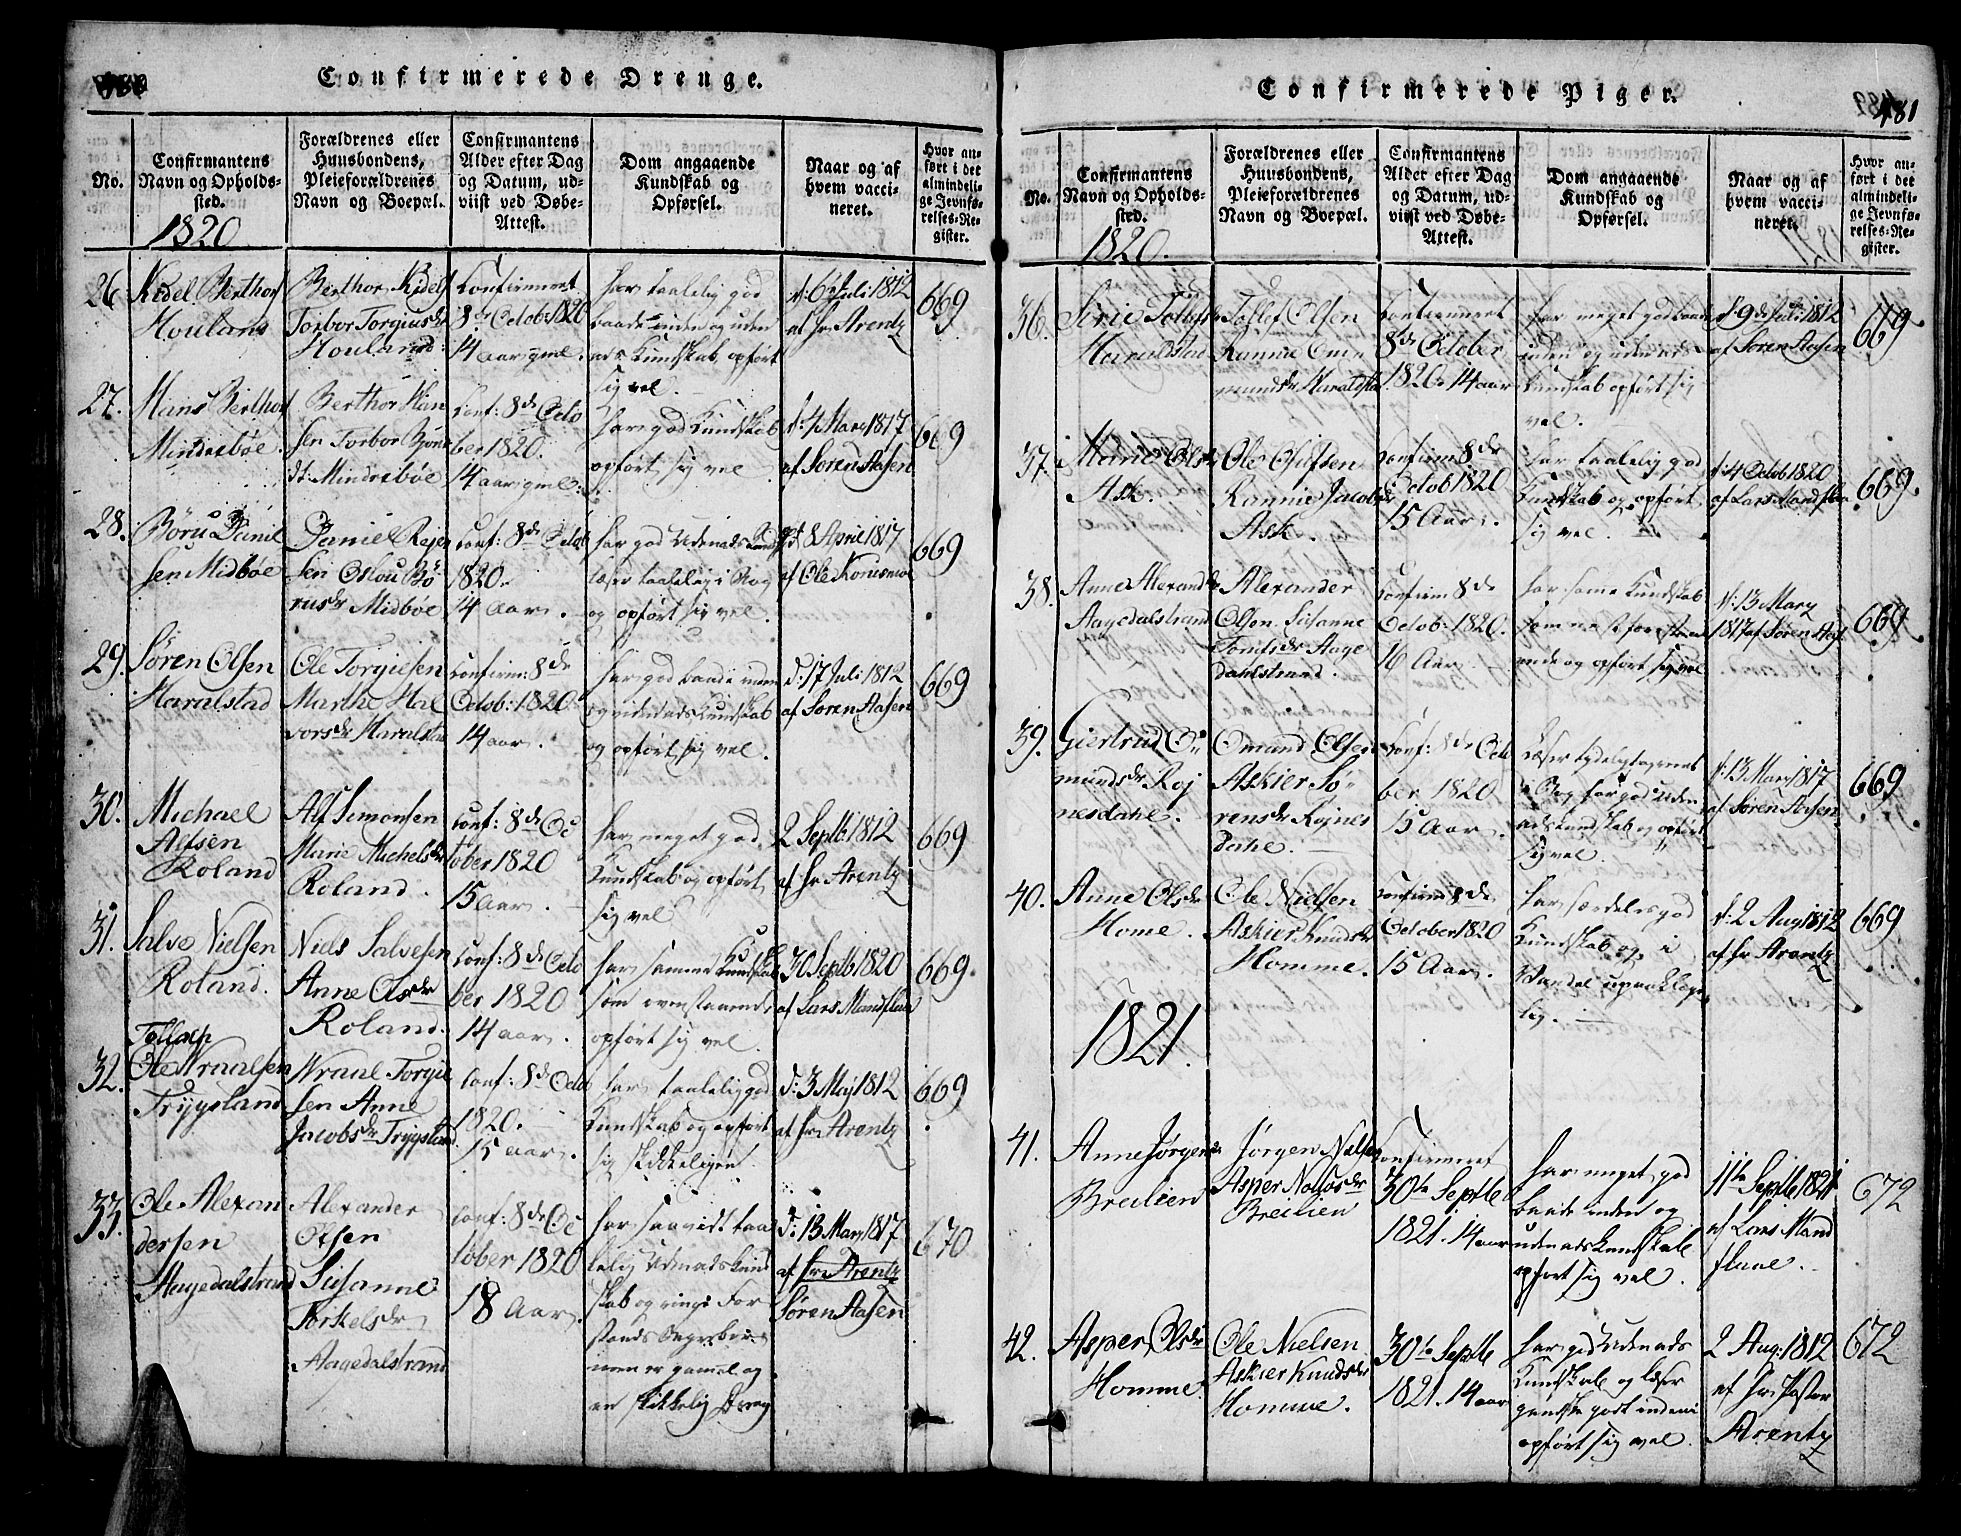 Confirmerede Drenge.
No.
Confirmantens
Navn og Opholds-
sted.
1820
Forældrenes eller
Huusbondens,
Pleieforældrenes
Navn og Boepæl.
Confirmantens
Alder efter Dag
og Datum, ud-
viist ved Døbe-
Attest.
Dom angaaende
Kundskab og
Opførsel.
Naar og af
hvem vacci-
neret.
Hvor an-
ført i det
almindeli-
ge Jevnfø-
relses-Re-
gister.
26
Kidel Berthors
Berthor Kidels
Confirmeret
har taalelig god
d: 6te Juli 1812
af Hr Arentz
669
14 aar gml.
sig vel.
27.
Hans Berthors
Mindrebøe
Berthor Han
sen Torbor
Mindrebøe
Conf: 8de Octo
ber 1820.
14 aar gml.
har god Kundskab
opført sig vel
d: 4 Marz 1817
af Søren Aasen
669
28.
Børu Daniel
sen Midbøe
Daniel
rusdr Midbøe
Conf: 8de Octob
1820.
14 Aar.
har god Udenads
og opført sig vel.
8 April 1817
af Ole
669
29.
Søren Olsen
Haralstad
Ole Torgiesen
Marthe Hal
vorsdr Haralstad
Confirm: 8de
Octob: 1820
14 aar.
har god baade inden
og udenadskundskab
og opført sig vel.
d: 17 Juli 1812
af Søren Aasen
669
30.
Michael
Alfsen
Roland
Alf Simonsen
Marie Michelsdr
Roland.
Conf: 8de Oc
tober 1820
15 Aar.
har meget god
Kundskab og opført
sig vel
2 Septb 1812
af Hr Arentz
669
31.
Salve Nielsen
Roland.
Niels Salvesen
Anne Olsdr
Roland.
Conf: 8de Octo
ber 1820
14 aar.
har samme Kundskab
som ovenstaaende
opført sig vel.
30 Septb 1820
af Lars Mandflaae
669
32.
Ole Wraalsen
Trygsland
Wraal Torgie
sen Anne
Jacobsdr Trygsland.
Conf: 8de Octob
1820.
15 aar.
har taalelig god
Kundskab og opført
sig skikkeligen.
d: 3 Maj 1812
af Hr Arentz
669
33.
Ole Alexan
dersen
Aagedalstrand
Alexander
Olsen
Susanne
Torkelsdr
Aagedalstrand
Conf: 8de Oc
tober 1820
18 Aar.
har saavidt taa
lelig Udenadskund
skab og ringe For
stands
men er gamel og
en skikkelig Dreng
d: 13 Marz 1817
af Hr Arentz
Søren Aasen
670
Confirmerede Piger.
481
No.
Confirmantens
Navn og Opholds-
sted.
1820.
Forældrenes eller
Huusbondens,
Pleieforældrenes
Navn og Boepæl.
Confirmantens
Alder efter Dag
og Datum, ud-
viist ved Døbe-
Attest.
Dom angaaende
Kundskab og
Opførsel.
Naar og af
hvem vacci-
neret.
Hvor an-
ført i det
almindeli-
ge Jevnfø-
relses-Re-
gister.
36.
Siri Tollefsdr
Haralstad
Tollef Olsen
Rannie Om
mundsdr Haralstad
Confirmeret
8de October
1820. 14 aar
har meget god baade
inden og udenads
Kundskab opført sig
vel.
d: 9de Juli 1812
af Søren Aasen
669
37.
Marie Olsdr
Ask.
Ole Olufsen
Rannie Jacobsdr
Ask.
Confirm 8de
Octob 1820
15 Aar.
har taalelig god
Kundskab og opført
sig vel.
d: 4 Octob 1820
af Lars Mandflaae
669.
38.
Anne Alexandsdr
Aagedalstrand
Alexander
Olsen. Susanne
Aage
dahlstrand.
Confirm 8de
Octob: 1820.
16 Aar.
har same Kundskab
som næstforestaa
ende og opført sig vel
d: 13 Marz
1817 af Søren Aas
669.
39.
Giertrud O
mundsdr Roj
nesdahl.
Omund Olsen
Askier Sø
rensdr Rojnes
dahl.
Conf: 8de Octo
ber 1820
15 Aar.
i Bog har god Uden
adskundskab og opført
sig vel.
d: 13 Marz 1817
af Søren Aasen.
669
40.
Anne Olsdr
Home.
Ole Nielsen
Askier Knudsdr
Homme.
Confirm 8de
October 1820
15 Aar.
har særdeles god
Kundskab og i
Vandel upaaklage
lig.
d: 2 Aug 1812
af Hr Arentz
669
1821.
41.
Anne Jørgensdr
Breilien
Jørgen Nielsen
Breilien
Confirmeret
30te Septb
1821. 14 aar
har meget god
baade inden og
udenadskundskab
opført sig vel.
11te Septb 1821
af Lars Mand
flaae.
672
42.
Asper Olsdr
Homme.
Ole Nielsen
Askier Knudsdr
Homme.
30te Septb
1821. 14 aar
har god Udenads
Kundskab og læser
ganske godt indeni
opført sig vel.
2 Aug: 1812
af Hr: Pastor
Arentz
672